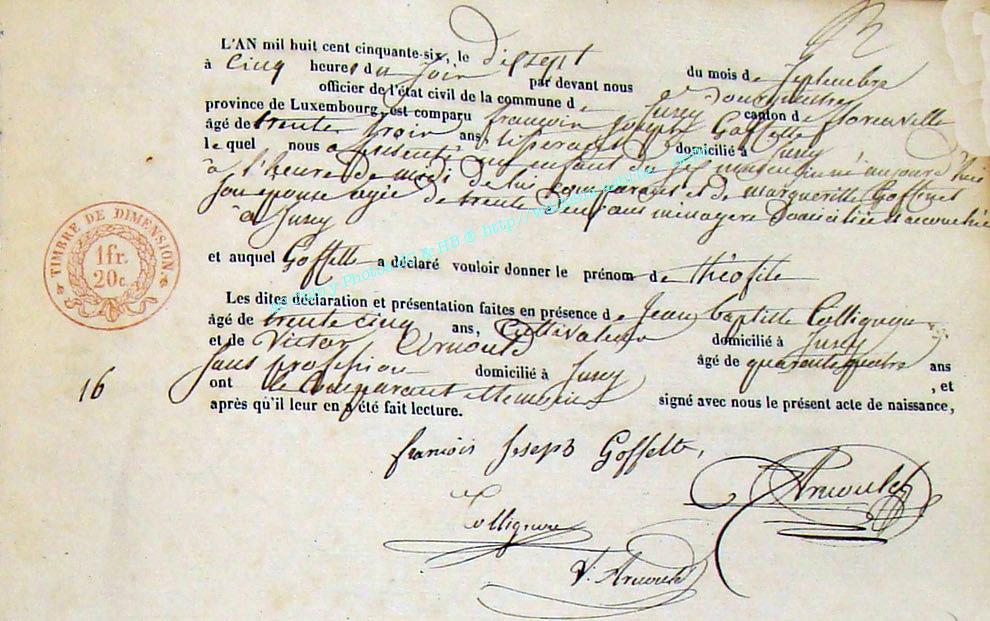 L'AN mil huit cent cinquante-six, le dix sept du mois de Septembre
à Cinq heures du Soir par devant nous
officier de l'état civil de la commune de Jusey canton de florenville
province de Luxembourg, est comparu françois Joseph Goffette
âgé de trente trois ans domicilié à Jusey
le quel nous a présenté un enfant du sex masculin né aujourd'hui
à l'heure de midi de lui comparant et de margueritte Goffinet
son epouse agée de trente deux ans menagere Domiciliée et accouchée
à Jusey
et auquel Goffette a déclaré vouloir donner le prénom de théofile
Les dites déclaration et présentation faites en présence de Jean Baptiste Collignon
âgé de trente cinq ans, Cultivateur domicilié à Jusey
et de Victor Arnould âgé de quarante quatre ans
sans profession domicilié à Jusey , et
ont le Comparant et temoins signé avec nous le présent acte de naissance,
après qu'il leur en a été fait lecture.
16
TIMBRE DE DIMENSION.
1 fr.
20 c.
françois Joseph Goffette,
Arnould
Collignon
V. Arnould